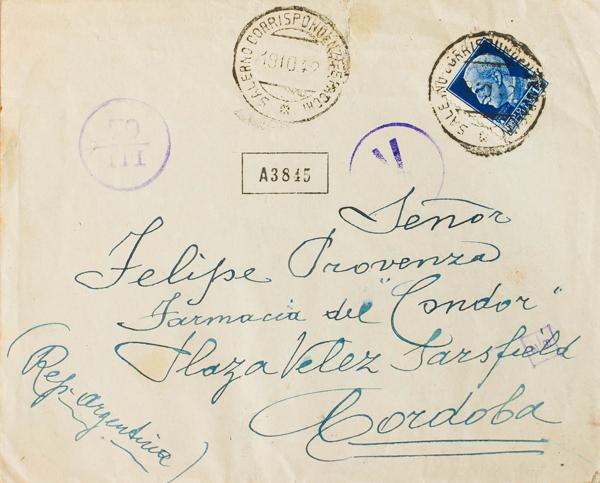 SALERNO CORRISPONDENZE PACCHI
19 10 42
A3845
Señor
Felipe Provenza
Farmacia del "Condor"
Plaza Velez Sarsfield
Cordoba
(Rep. Argentina)